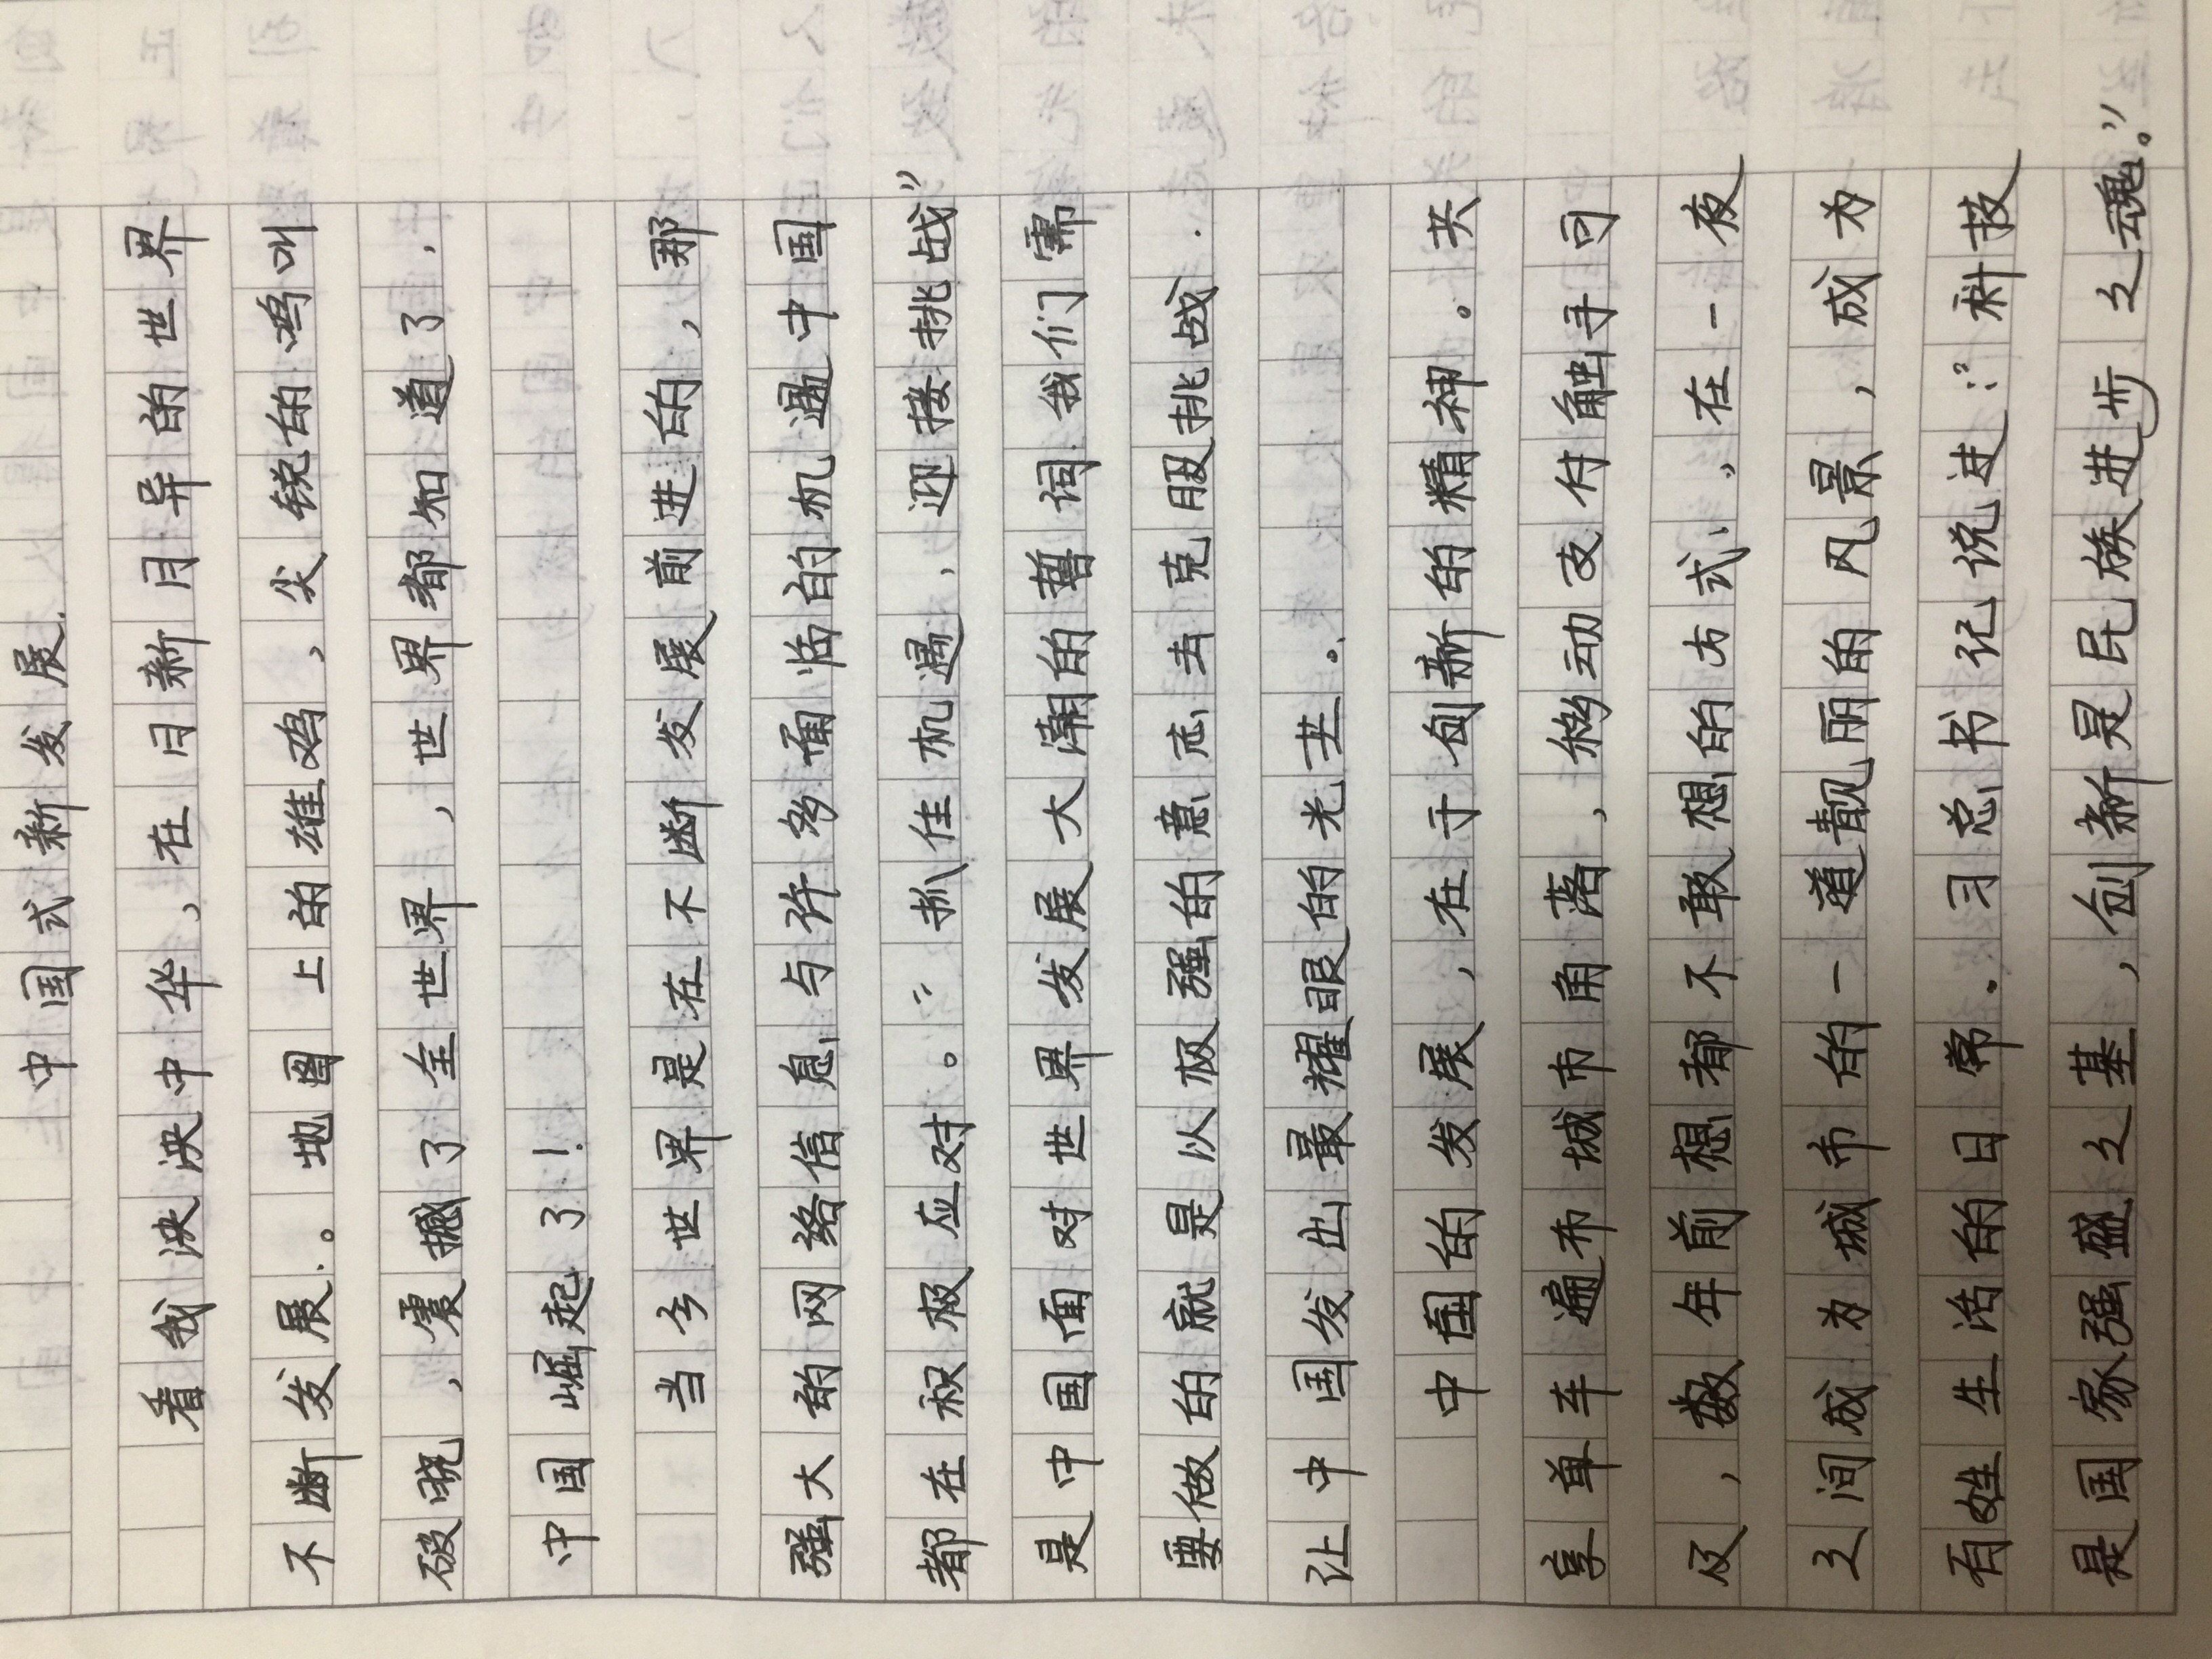 中国式新发展.
看我泱泱中华,在日新月异的世界
不断发展.。地图上的雄鸡,尖锐的鸣叫
破晓,震撼了全世界,世界都知道了,
中国崛起了!
当今世界是在不断发展前进的,那
强大的网络信息与许多面临的机遇中国
都在积极应对。“抓住机遇,迎接挑战”
是中国面对世界发展大潮的誓词.我们需
要做的就是以极强的意志去克服挑战.
让中国发出最耀眼的光芒。
中国的发展,在于创新的精神。共
享单车遍布城市角落,移动支付触手可
及,数年前想都不敢想的方式,在一夜
之间成为城市的一道靓丽的风景,成为
百姓生活的日常.习总书记说过:“科技
是国家强盛之基,创新是民族进步之魂。”